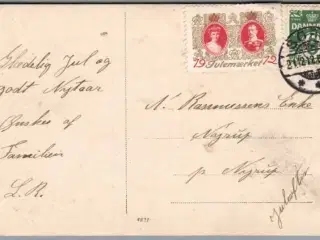 Glædelig Jul og
godt Nytaar
Ønskes af
Familien
L.R.
19 Julemærket 12
DANMARK
N. Rasmussens Enke
Nyrup
p Nyrup